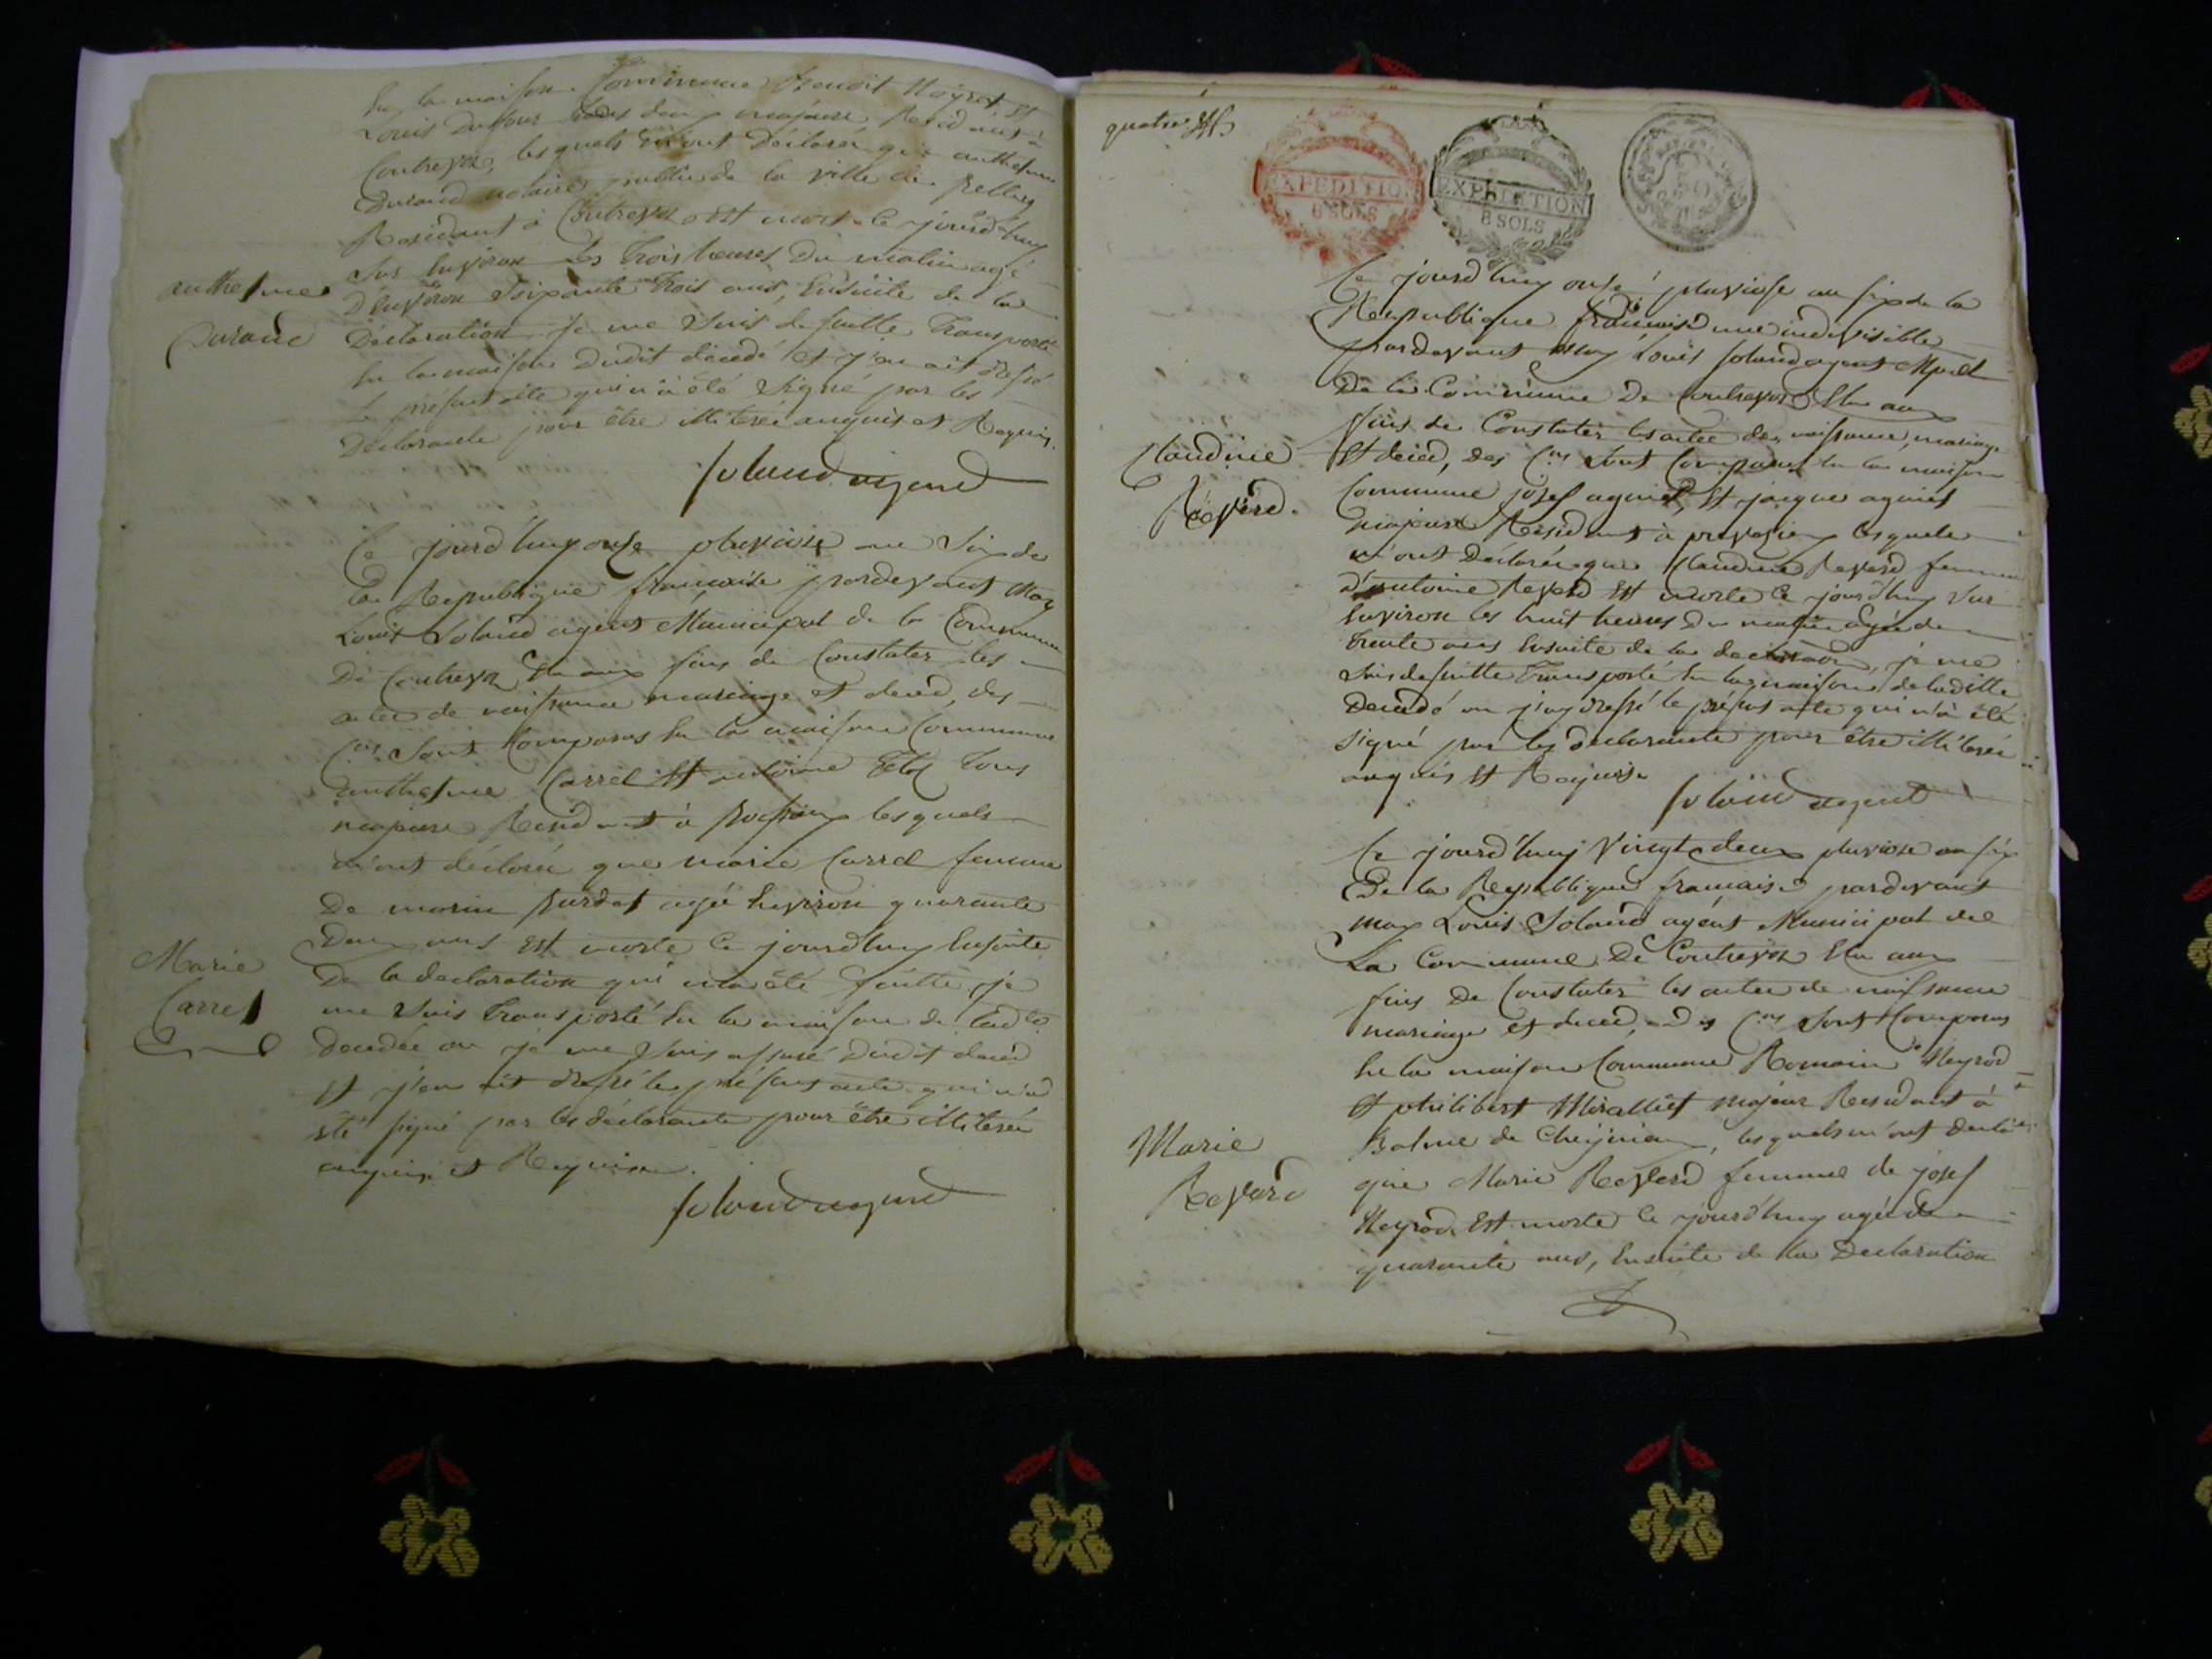 En la maison Commune Benoit Neyret Et
Louis Dufour tous deux majeure Residants à
Contrevoz, lesquels m'ont Déclaré que anthelme
Durand notaire public de la ville de Belley
Residant à Contrevoz est mort ce jourd'huy
Sur Environ les trois heures Du matin agé
D'Environ Soixante trois ans, Ensuite de la
Déclaration Je me Suis de suitte Transporté
En la maison Dudit décédé et j'en ait dressé
Le présent acte qui n'a été Signé par les
Déclarants pour être illiteré enquis et Requis.
anthelme
Durand
Soland agend
Ce jourd'huy onze pluviose an Six de
La Republique française pardevant Moy
Louis Soland agent Municipal de la Commune
De Contrevoz Elu aux fins de Constater les
actes de naissance mariage et décèd, des
Cns Sont Comparus En la maison Commune
anthelme Carrel Et antoine tous
majeure Residents à lesquels
m'ont déclaré que marie Carrel femme
De marin agée Environ quarante
Deux ans Est morte Ce jourd'huy Ensuite
De la declaration qui m'a été faitte, je
me Suis transporté En la maison de lad.te
décédée ou je me Suis assuré Dudit décèd
Et j'en ait dressé le présent acte qui n'a
été signé par les déclarants pour être illiteré
enquis et Requis.
Marie
Carrel
Soland agend
quatre
EXPEDITION
8 SOLS
EXPEDITION
8 SOLS
50
Ce jourd'huy onze pluviose an six de la
Republique française une indivisible
pardevant moy Louis Soland agent Mpal
De la Commune De Contrevoz Elu aux
fins de Constater les actes de naissance, mariage
Et décèd, des Cns Sont Comparus En la maison
Commune josef Et jacque
majeure Residant à lesquels
m'ont Déclaré que Claudine Reverd femme
D'antoine Reverd Est morte Ce jourd'huy Sur
Environ les huit heures Du matin agée de
trente ans Ensuite de la declaration, je me
Suis de suitte Transporté En la maison de laditte
Decedé ou j'ay dressé le présent acte qui n'a été
Signé par les declarants pour être illiteré
enquis Et Requis
Claudine
Reverd.
Soland agent
Ce jourd'huy Vingt deux pluviose an six
De la Republique française pardevant
moy Louis Soland agent Municipal de
La Commune De Contrevoz Elu aux
fins De Constater les actes de naissance
mariage et décèd, des Cns Sont Comparus
En la maison Commune Romain Neyrod
Et philibert Miralliet majeur Residant à
Balme de , lesquels m'ont declaré
que Marie Reverd femme de josef
Neyrod Est morte Ce jourd'huy agée de
quarante ans, Ensuite de la Declaration
Marie
Reverd